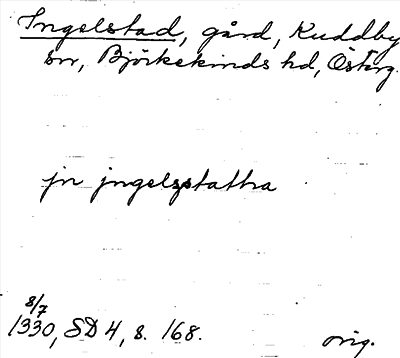 Ingelstad, gård, Kuddby
sn, Björkekinds hd, Österg.
jn jngelsstattha
8/7
1330, SD 4, s. 168.
orig.